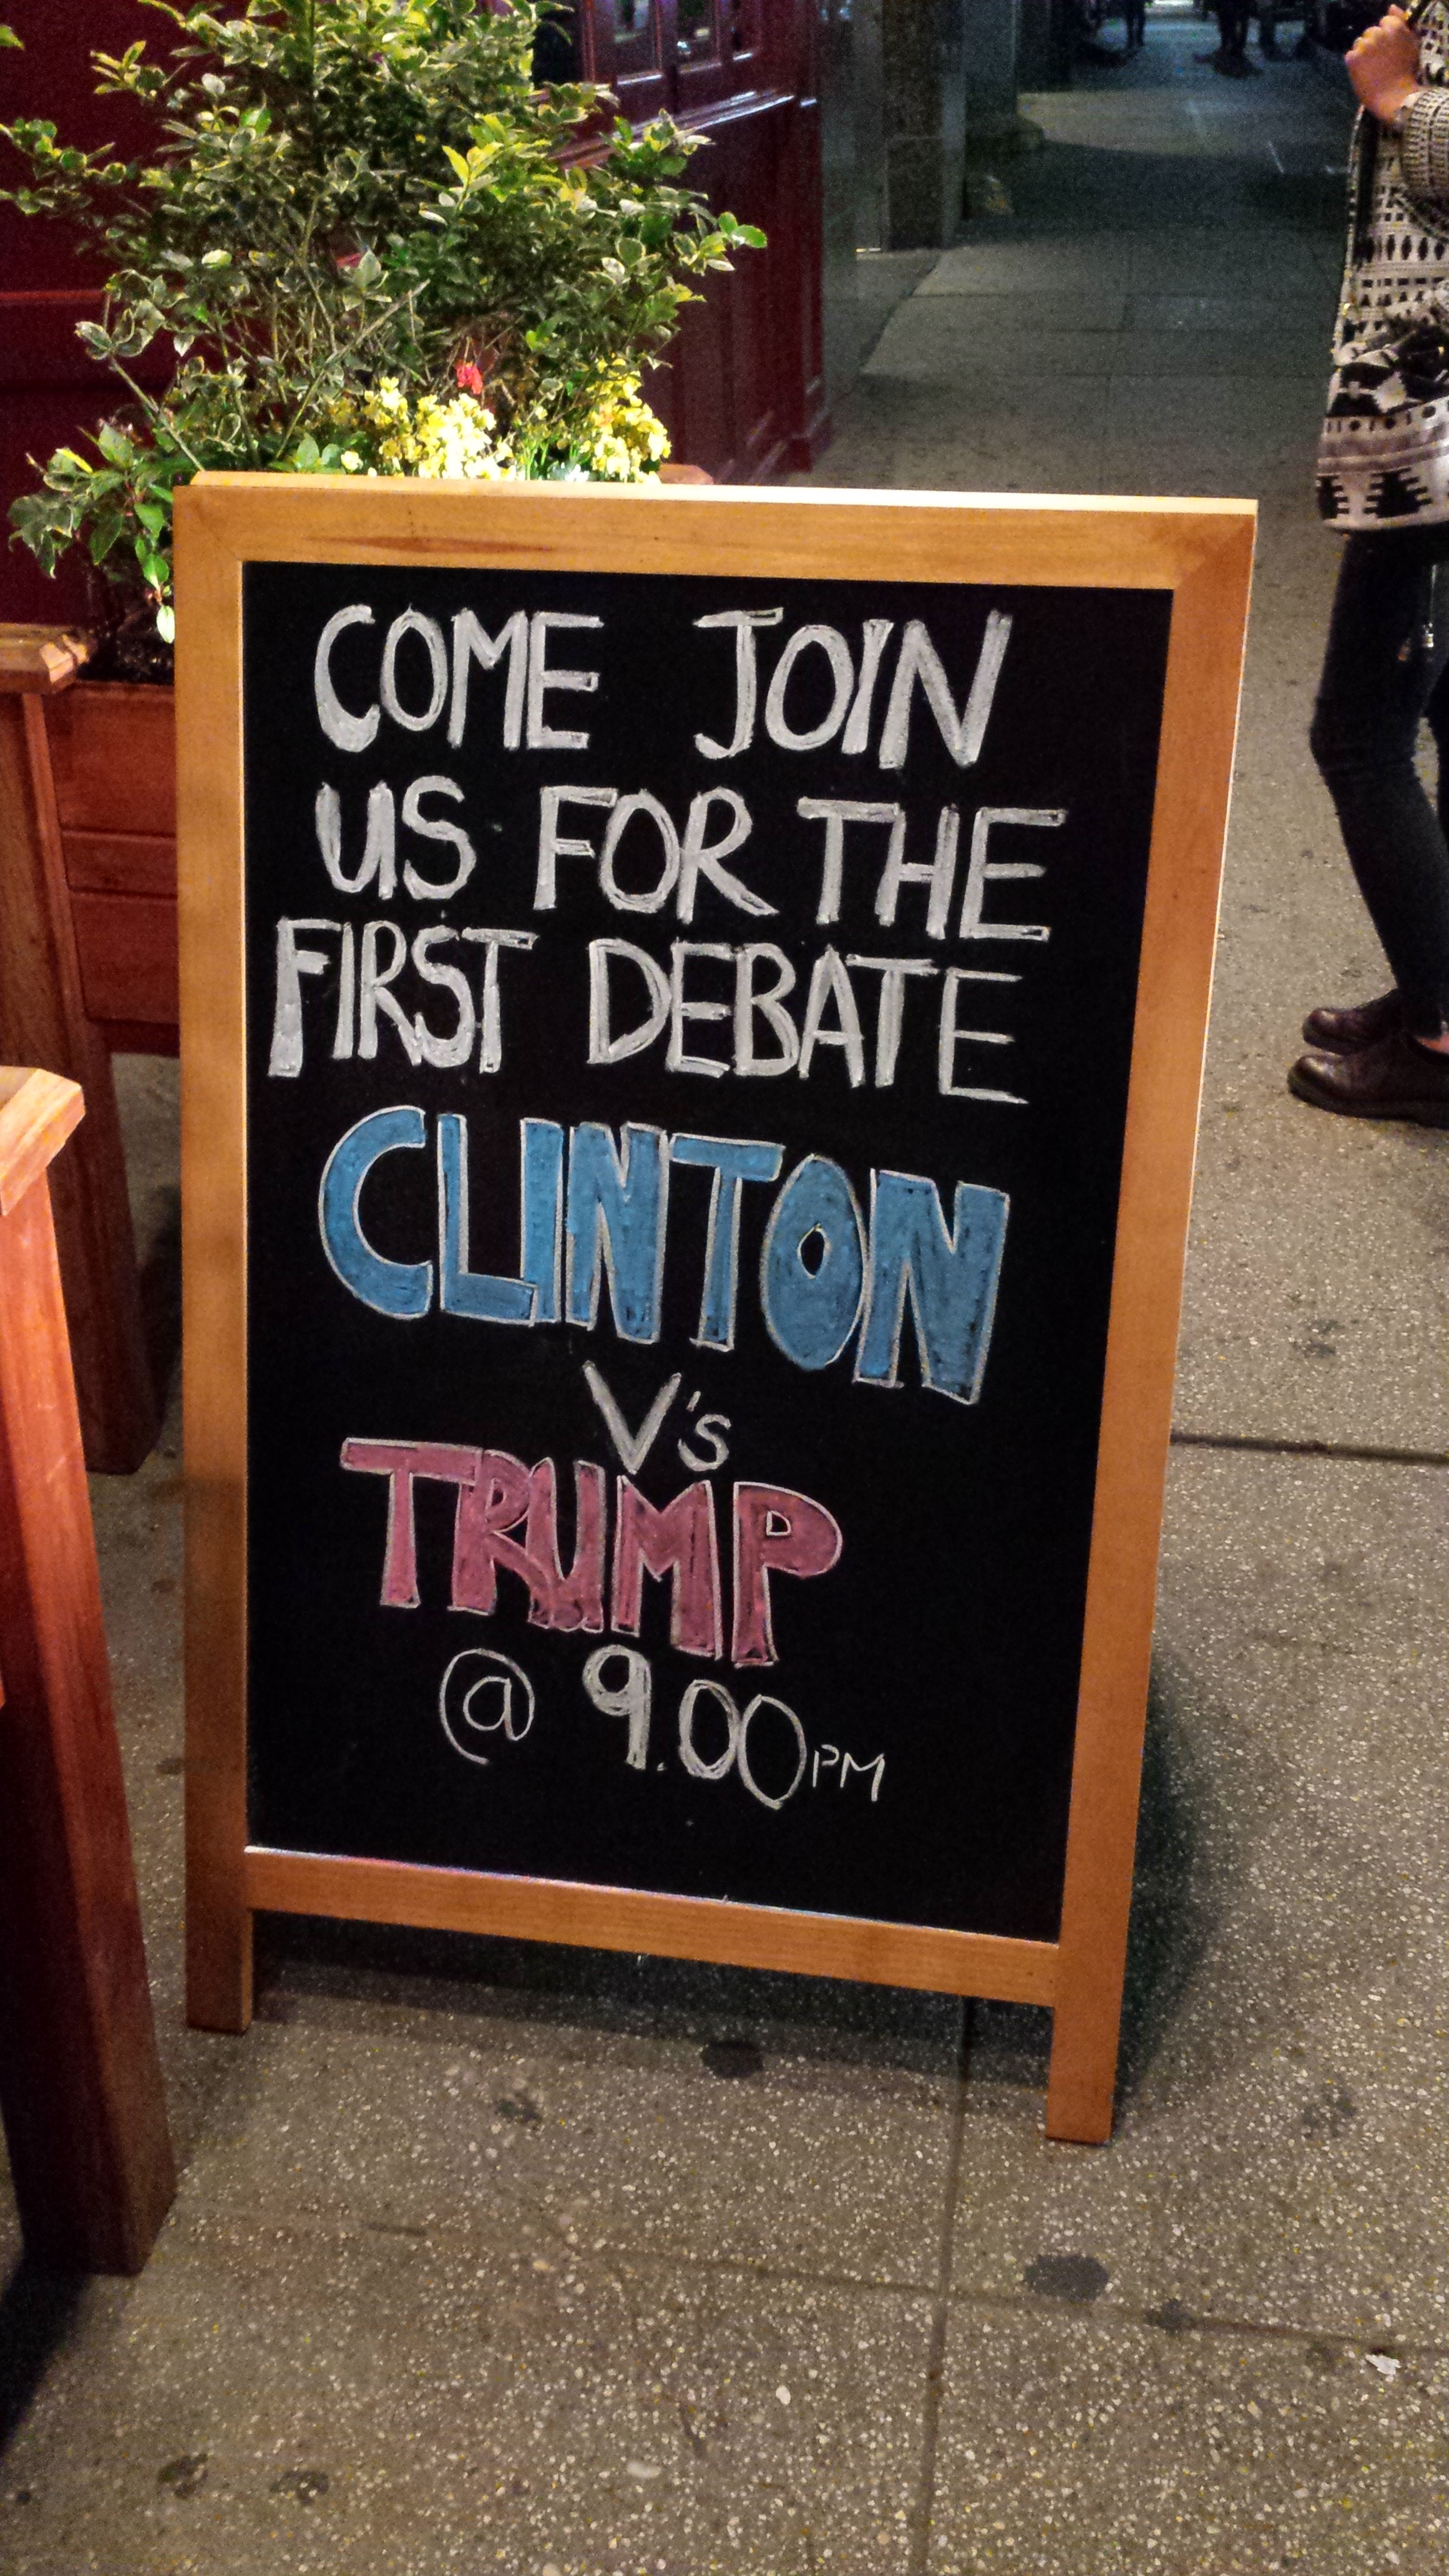 COME JOIN
US FOR THE
FIRST DEBATE
CLINTON
V's
TRUMP
@ 9.00PM